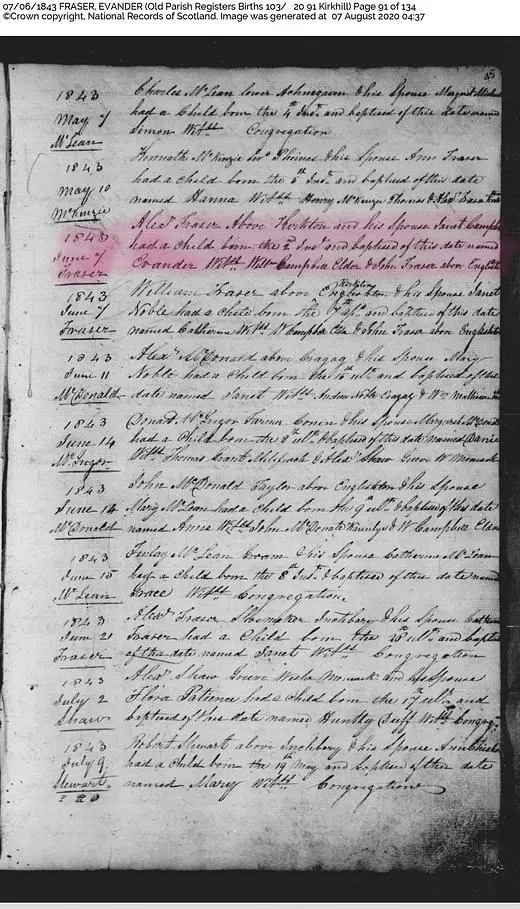 07/06/1843 FRASER, EVANDER (Old Parish Registers Births 103/ 20 91 Kirkhill) Page 91 of 134
©Crown copyright, National Records of Scotland. Image was generated at 07 August 2020 04:37
45
1843 Charles McLean lower Achnagairn & his Spouse Margaret
May 7 had a Child born the 4th Inst. and baptised of this date named
McLean Simon Witss. Congregation
1843 Kenneth McKinzie Phinas & his Spouse Ann Fraser
May 10 had a child born the 5th Inst. and baptised of this date
McKinzie named Hanna Witss. Henry McKinzie & Alexr Fraser
1843 Alexr Fraser Above and his Spouse Janet Campbell
June 7 had a child born the 2d Inst and baptised of this date named
Fraser Evander Witss. Willm Campbell Elder & John Fraser abov English
1843 William Fraser above Englishton & his Spouse Janet
June 7 Noble had a Child born the and baptised of this date
Fraser named Catherine Witss. W Campbell & John Fraser above Englishton
1843 Alexr McDonald above Cragag & his Spouse Mary
June 11 Noble had a Child born the ult. and baptised of this
McDonald date named Janet Witss. Andrew Noble Cragag & Wm
1843 Donald McGregor Farmer & his Spouse Margaret
June 14 had a Child born the 8th ult. & baptised of this date named
McGregor Witss. Thomas Grant & Alexr Shaw Grieve
1843 John McDonald Taylor abov Englishton & his Spouse
June 14 Mary McLean had a Child born the 9 ult. & baptised of this date
McDonald named Anne Witss. John McDonald & W Campbell Elder
1843 Finlay McLean & his Spouse Catherine McLean
June 15 had a Child born the 8th Inst. & baptised of this date named
McLean Grace Witss. Congregation
1843 Alexr Fraser Shomaker Inchbery & his Spouse
June 21 Fraser had a Child born the 28th ult. and
Fraser of this date named Janet Witss. Congregation
1843 Alexr Shaw Grieve and his Spouse
July 2 Flora Patience had a Child born the 17 ult. and
Shaw baptised of this date named Huntly Duff Witss.
1843 Robert Stewart above Inchbery & his Spouse Ann
July 9 had a Child born the 19 May and baptised of this date
Stewart named Mary Witss. Congregation